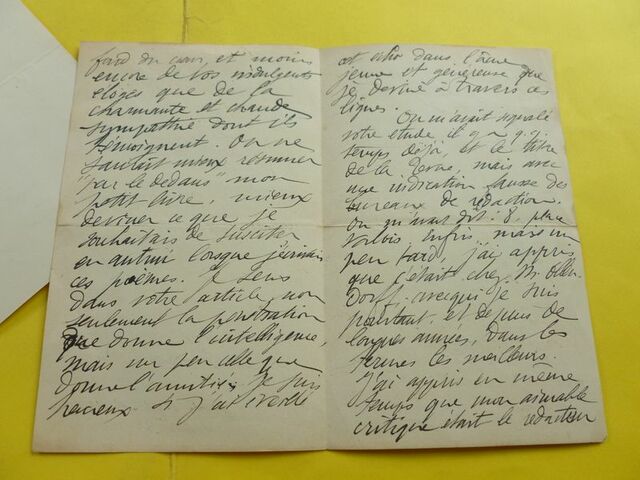 fond du cœur, et moins
encore de vos indulgents
éloges que de la
charmante et chaude
sympathie dont ils
témoignent. On ne
saurait mieux résumer
"par le dedans" mon
petit livre, mieux
deviner ce que je
souhaitais de susciter
en autrui lorsque j'écrivais
ces poèmes. Je sens
dans votre article, non
seulement la pénétration
que donne l'intelligence,
mais un peu celle que
donne l'amitié. Je suis
heureux si j'ai éveillé
cet écho dans l'âme
jeune et généreuse que
je devine à travers ces
lignes.
On m'avait signalé
votre étude il y a q.q.
temps déjà, et le titre
de la Revue, mais avec
une indication fausse des
bureaux de rédaction.
On m'avait dit: 8, place
Valois. Enfin, mais un
peu tard, j'ai appris
que c'était chez M. Ollen-
dorff, avec qui je suis
pourtant, et depuis de
longues années, dans les
termes les meilleurs.
J'ai appris en même
temps que mon aimable
critique était le rédacteur